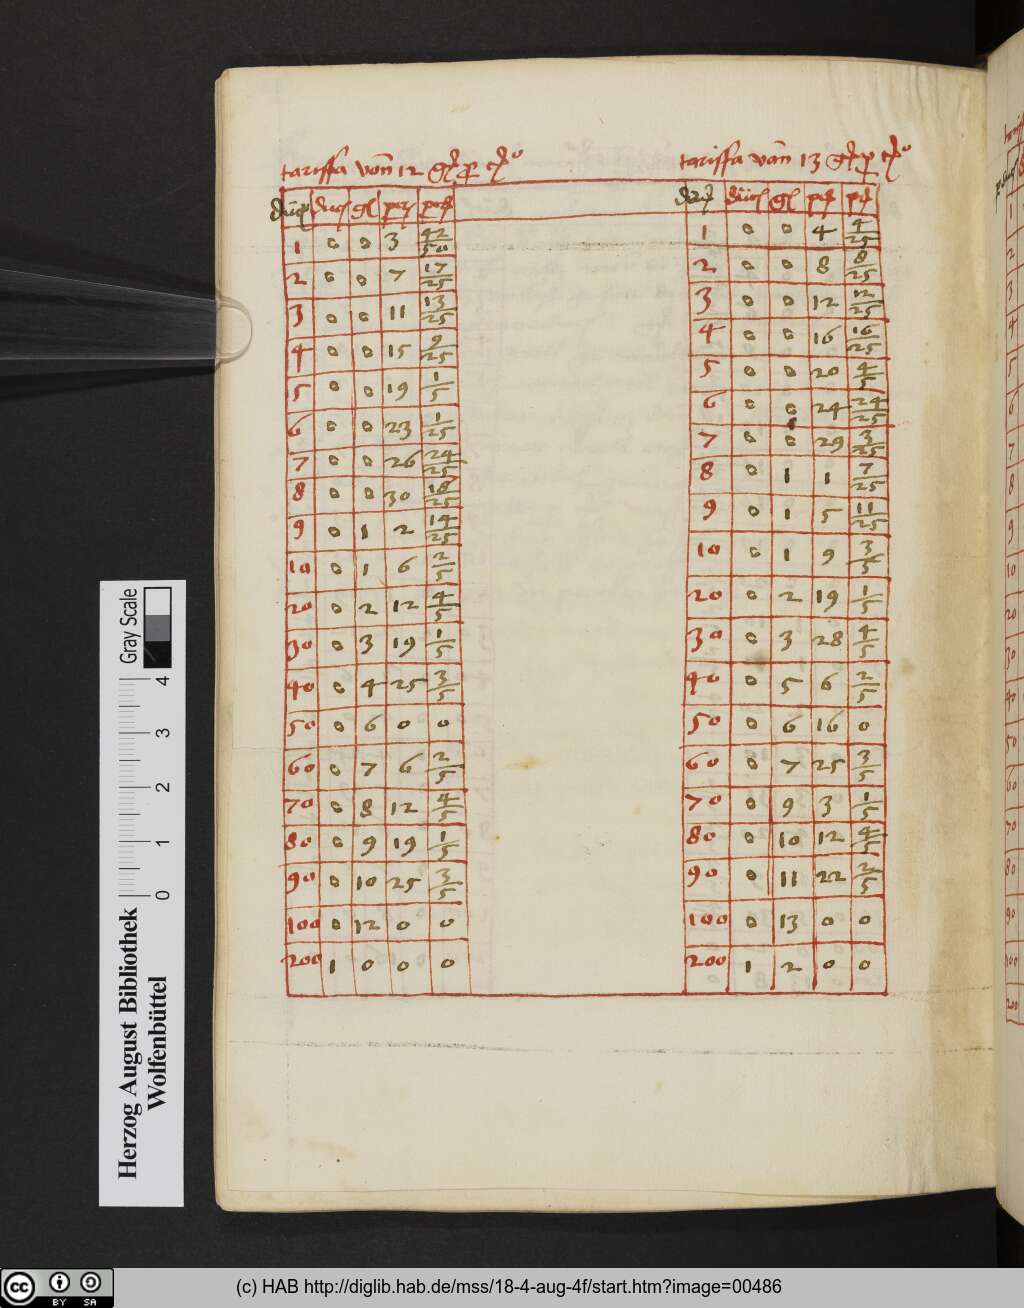 tariffa von 12 gl p c°
duc gl
1 0 0 3 42/50
2 0 0 7 17/25
3 0 0 11 13/25
4 0 0 15 9/25
5 0 0 19 1/5
6 0 0 23 1/25
7 0 0 26 24/25
8 0 0 30 18/25
9 0 1 2 14/25
10 0 1 6 2/5
20 0 2 12 4/5
30 0 3 19 1/5
40 0 4 25 3/5
50 0 6 0 0
60 0 7 6 2/5
70 0 8 12 4/5
80 0 9 19 1/5
90 0 10 25 3/5
100 0 12 0 0
200 1 0 0 0
tariffa von 13 gl p c°
duc gl
1 0 0 4 4/25
2 0 0 8 8/25
3 0 0 12 12/25
4 0 0 16 16/25
5 0 0 20 4/5
6 0 0 24 24/25
7 0 0 29 3/25
8 0 1 1 7/25
9 0 1 5 11/25
10 0 1 9 3/5
20 0 2 19 1/5
30 0 3 28 4/5
40 0 5 6 2/5
50 0 6 16 0
60 0 7 25 3/5
70 0 9 3 1/5
80 0 10 12 4/5
90 0 11 22 2/5
100 0 13 0 0
200 1 2 0 0
Gray Scale
0 1 2 3 4
Herzog August Bibliothek
Wolfenbüttel
cc BY SA
(c) HAB http://diglib.hab.de/mss/18-4-aug-4f/start.htm?image=00486